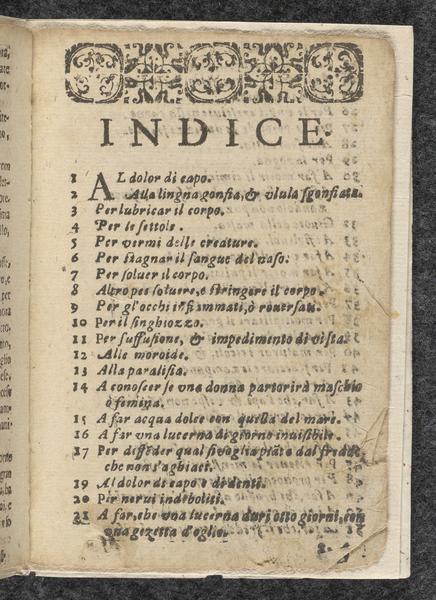 INDICE.
1 AL dolor di capo.
2 Alla lingua gonfia, & vlula sgonfiata.
3 Per lubricar il corpo.
4 Per le settole.
5 Per vermi delle creature.
6 Per stagnar il sangue del naso.
7 Per soluer il corpo.
8 Altro per soluere, e stringere il corpo.
9 Per gl'occhi infiammati, ò rouersati.
10 Per il singhiozzo.
11 Per suffusione, & impedimento di vista.
12 Alle moroide.
13 Alla paralisia.
14 A conoscer se vna donna partorirà maschio
ò femina.
15 A far acqua dolce con quella del mare.
16 A far vna lucerna di giorno inuisibile.
17 Per diffender qual si voglia piāta dal freddo
che non s'aghiaci.
19 Al dolor di capo e di denti.
20 Per nerui indeboliti.
21 A far, che vna lucerna duri otto giorni, con
vna gezetta d'oglio.